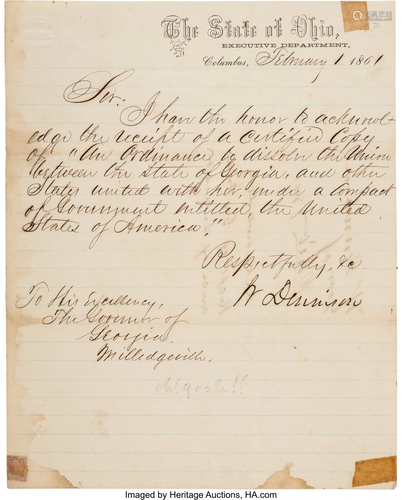 The State of Ohio,
EXECUTIVE DEPARTMENT,
Columbus, February 1 1861
Sir:
I have the honor to acknowl-
edge the receipt of a certified Copy
of "An Ordinance to dissolve the Union
between the state of Georgia, and other
States united with her, under a Compact
of Government entitled, the United
States of America."
Respectfully, &c
W Dennison
To His Excellency,
The Governor of
Georgia
Milledgeville.
oh! gosh!!
Imaged by Heritage Auctions, HA.com